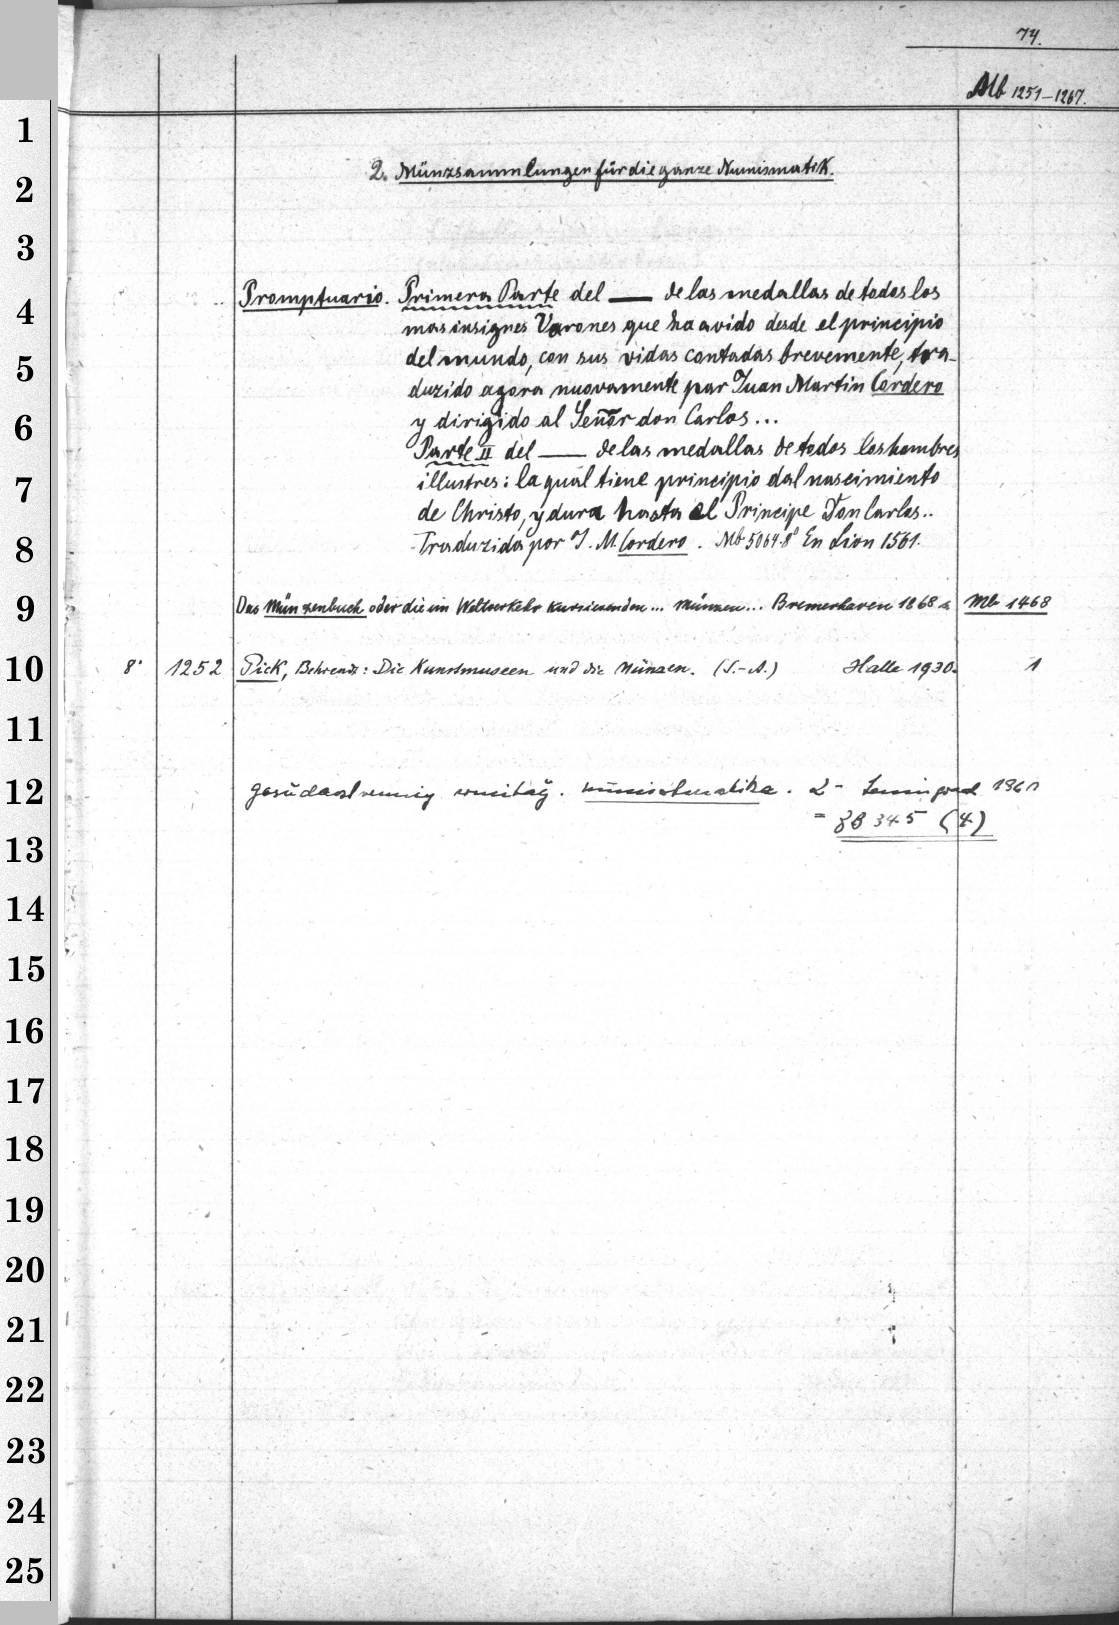 74.
Mb 1251-1267.
1
2
3
4
5
6
7
8
9
10
11
12
13
14
15
16
17
18
19
20
21
22
23
24
25
2. Münzsammlungen für die ganze Numismatik.
Promptuario. Primera Parte del — de las medallas de todos los
mas insignes Varones que ha avido desde el principio
del mundo, con sus vidas contadas brevemente, tra-
duzido agora nuovamente par Juan Martin Cordero
y dirigido al Señor don Carlos...
Parte II del — de las medallas de todos los hombres
illustres: la qual tiene principio dal nascimiento
de Christo, y dura hasta el Principe Don Carlos..
Traduzida por J. M. Cordero. Mb 5064.8° En Lion 1561.
Das Münzenbuch oder die im Weltverkehr kursierenden... Münzen... Bremerhaven 1868 Mb 1468
8° 1252 Pick, Behrendt: Die Kunstmuseen und die Münzen. (S.-A.) Halle 1930. 1
gosudarstvennig ermitağ. numismatika. 2 - Leningrad 1961
= ZB 345 (4)